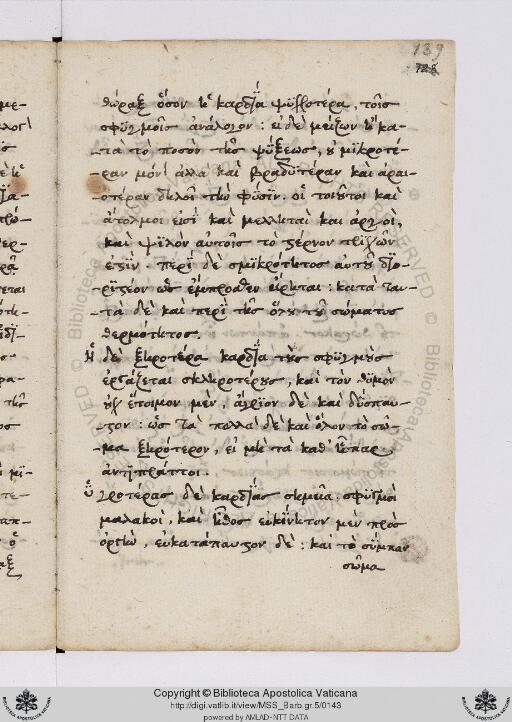 139
θώραξ ὅσον ἡ καρδία ψυχροτέρα, τοῖς
σφυγμοῖς ἀνάλογον : εἰ δὲ μείζων ἢ κα-
τὰ τὸ ποσὸν τῆς ψύξεως, οὐ μικροτέ-
ραν μόνον ἀλλὰ καὶ βραδυτέραν καὶ ἀραι-
οτέραν δηλοῖ τὴν φύσιν. οἱ τοιοῦτοι καὶ
ἄτολμοι εἰσὶ καὶ μελληταὶ καὶ ἀργοὶ,
καὶ ψιλὸν αὐτοῖς τὸ στέρνον τριχῶν
ἐστὶν· περὶ δὲ σμικρότητος αὐτοῦ διο-
ριστέον ὡς ἔμπροσθεν εἴρηται : κατὰ ταυ-
τὰ δὲ καὶ περὶ τῆς ὅλου τοῦ σώματος
θερμότητος.
Ἡ δὲ ξηροτέρα καρδία τοὺς σφυγμοὺς
ἐργάζεται σκληροτέρους, καὶ τὸν θυμὸν
οὐχ ἕτοιμον μὲν, ἄγριον δὲ καὶ δύσπαυ-
στον : ὡς τὰ πολλὰ δὲ καὶ ὅλον τὸ σῶ-
μα ξηρότερον, εἰ μὴ τὰ καθ' ἧπαρ
ἀντιπράττοι.
Ὑγροτέρας δὲ καρδίας σημεῖα, σφυγμοὶ
μαλακοὶ, καὶ ἦθος εὐκίνητον μὲν πρὸς
ὀργὴν, εὐκατάπαυστον δὲ : καὶ τὸ σύμπαν
σῶμα
Copyright © Biblioteca Apostolica Vaticana
http://digi.vatlib.it/view/MSS_Barb.gr.5/0143
powered by AMLAD-NTT DATA